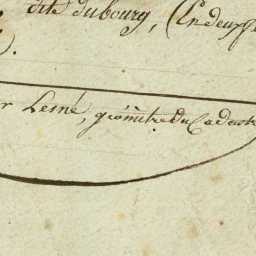 dite du bourg, (En deux fe
).
r Lesné, géomètre du Cadastr